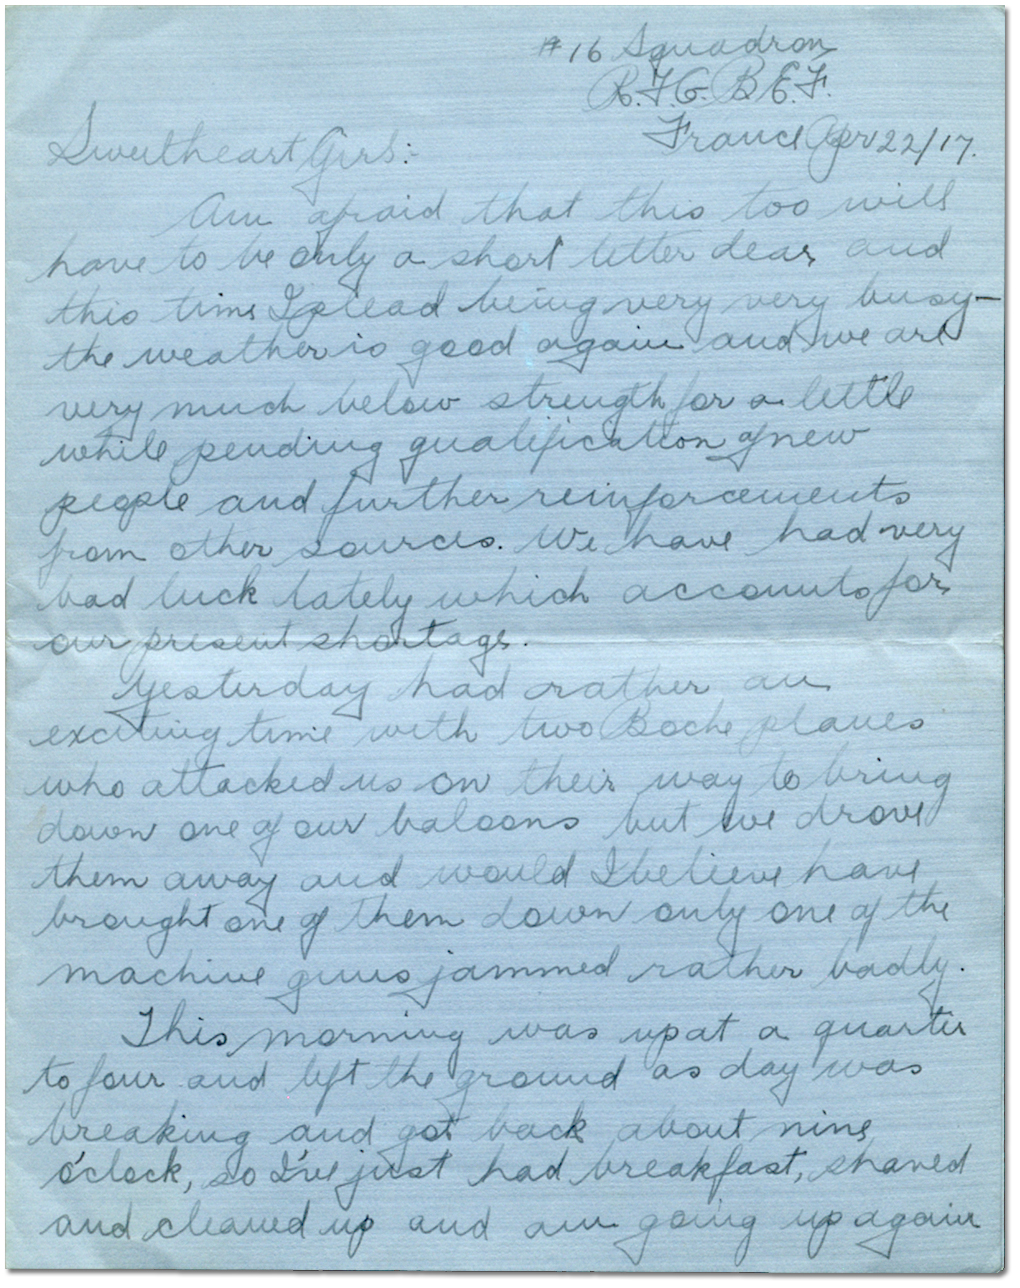 #16 Squadron
R.F.C. B.E.F.
France Apr 22/17.
Sweetheart Girl:
Am afraid that this too will
have to be only a short letter dear, and
this time I plead being very very busy—
the weather is good again and we are
very much below strength for a little
while pending qualification of new
people and further reinforcements
from other sources. We have had very
bad luck lately which accounts for
our present shortage.
Yesterday had rather an
exciting time with two Boche planes
who attacked us on their way to bring
down one of our baloons but we drove
them away and would I believe have
brought one of them down only one of the
machine guns jammed rather badly.
This morning was up at a quarter
to four and left the ground as day was
breaking and got back about nine
o'clock, so I've just had breakfast, shaved
and cleaned up and am going up again